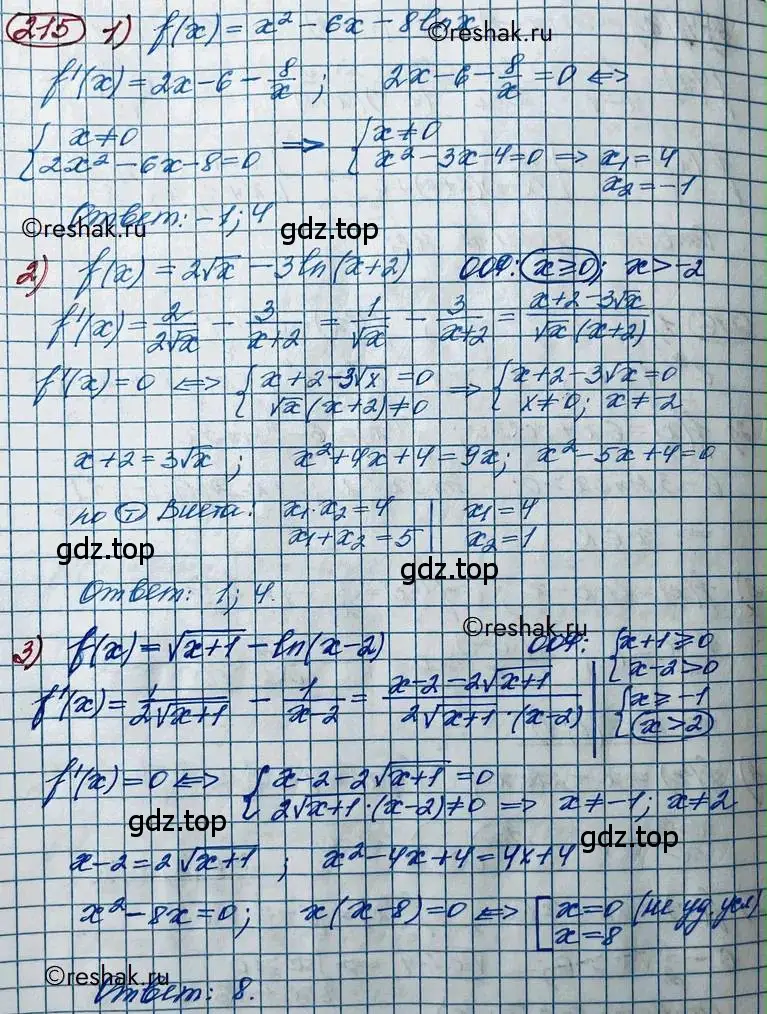 215 1) f(x) = x² - 6x - 8lnx
©reshak.ru
f'(x) = 2x - 6 - 8/x ; 2x - 6 - 8/x = 0 ⇔
{ x ≠ 0 ⇒ { x ≠ 0
{ 2x² - 6x - 8 = 0 { x² - 3x - 4 = 0 ⇒ x₁ = 4
x₂ = -1
Ответ: -1; 4
©reshak.ru gdz.top
2) f(x) = 2√x - 3ln(x+2) ООФ: x ≥ 0; x > -2
f'(x) = 2/(2√x) - 3/(x+2) = 1/√x - 3/(x+2) = (x+2-3√x)/(√x(x+2))
f'(x) = 0 ⇔ { x+2-3√x = 0 ⇒ { x+2-3√x = 0
{ √x(x+2) ≠ 0 { x ≠ 0; x ≠ -2
x+2 = 3√x ; x²+4x+4 = 9x; x²-5x+4 = 0
по Т Виета: x₁·x₂ = 4 | x₁ = 4
x₁+x₂ = 5 | x₂ = 1
gdz.top gdz.top
Ответ: 1; 4.
©reshak.ru
3) f(x) = √(x+1) - ln(x-2) ООФ: { x+1 ≥ 0
{ x-2 > 0
f'(x) = 1/(2√(x+1)) - 1/(x-2) = (x-2-2√(x+1))/(2√(x+1)·(x-2)) | { x ≥ -1
{ x > 2
f'(x) = 0 ⇔ { x-2-2√(x+1) = 0
{ 2√(x+1)·(x-2) ≠ 0 ⇒ x ≠ -1; x ≠ 2
gdz.top gdz.top
x-2 = 2√(x+1) ; x²-4x+4 = 4x+4
x²-8x = 0; x(x-8) = 0 ⇔ [ x = 0 (не уд. усл)
[ x = 8
©reshak.ru
Ответ: 8.